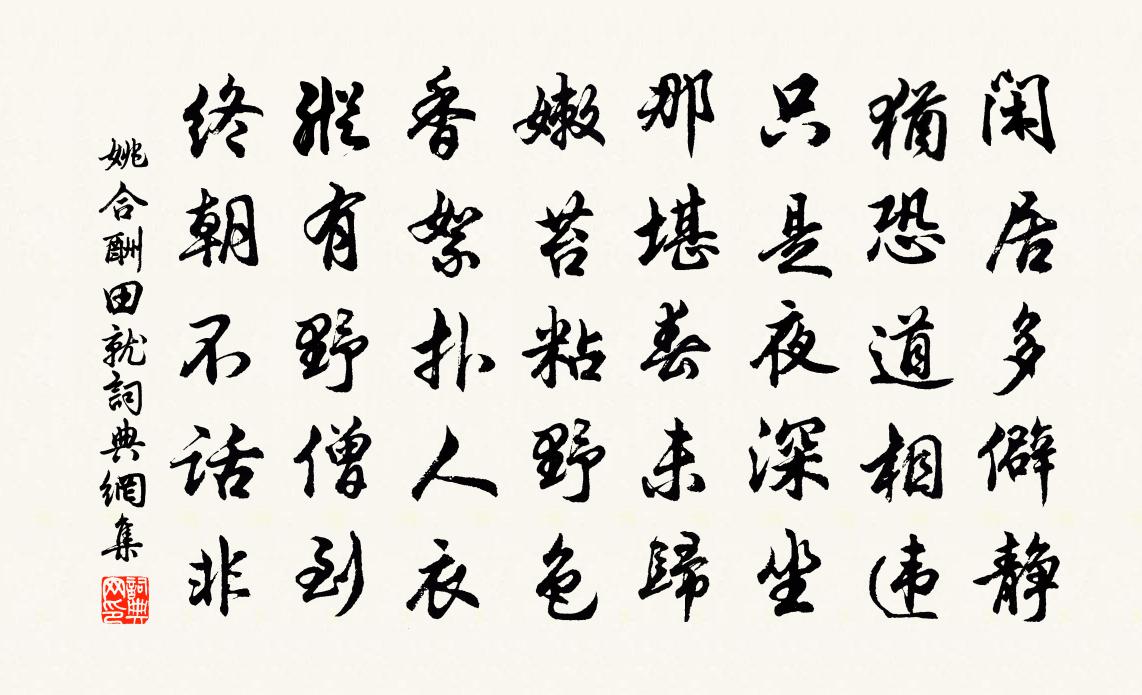 闲居多僻静
猶恐道相违
只是夜深坐
那堪春未歸
嫩苔粘野色
香絮扑人衣
縱有野僧到
终朝不话非
姚合酬田就詞典網集
詞典網印